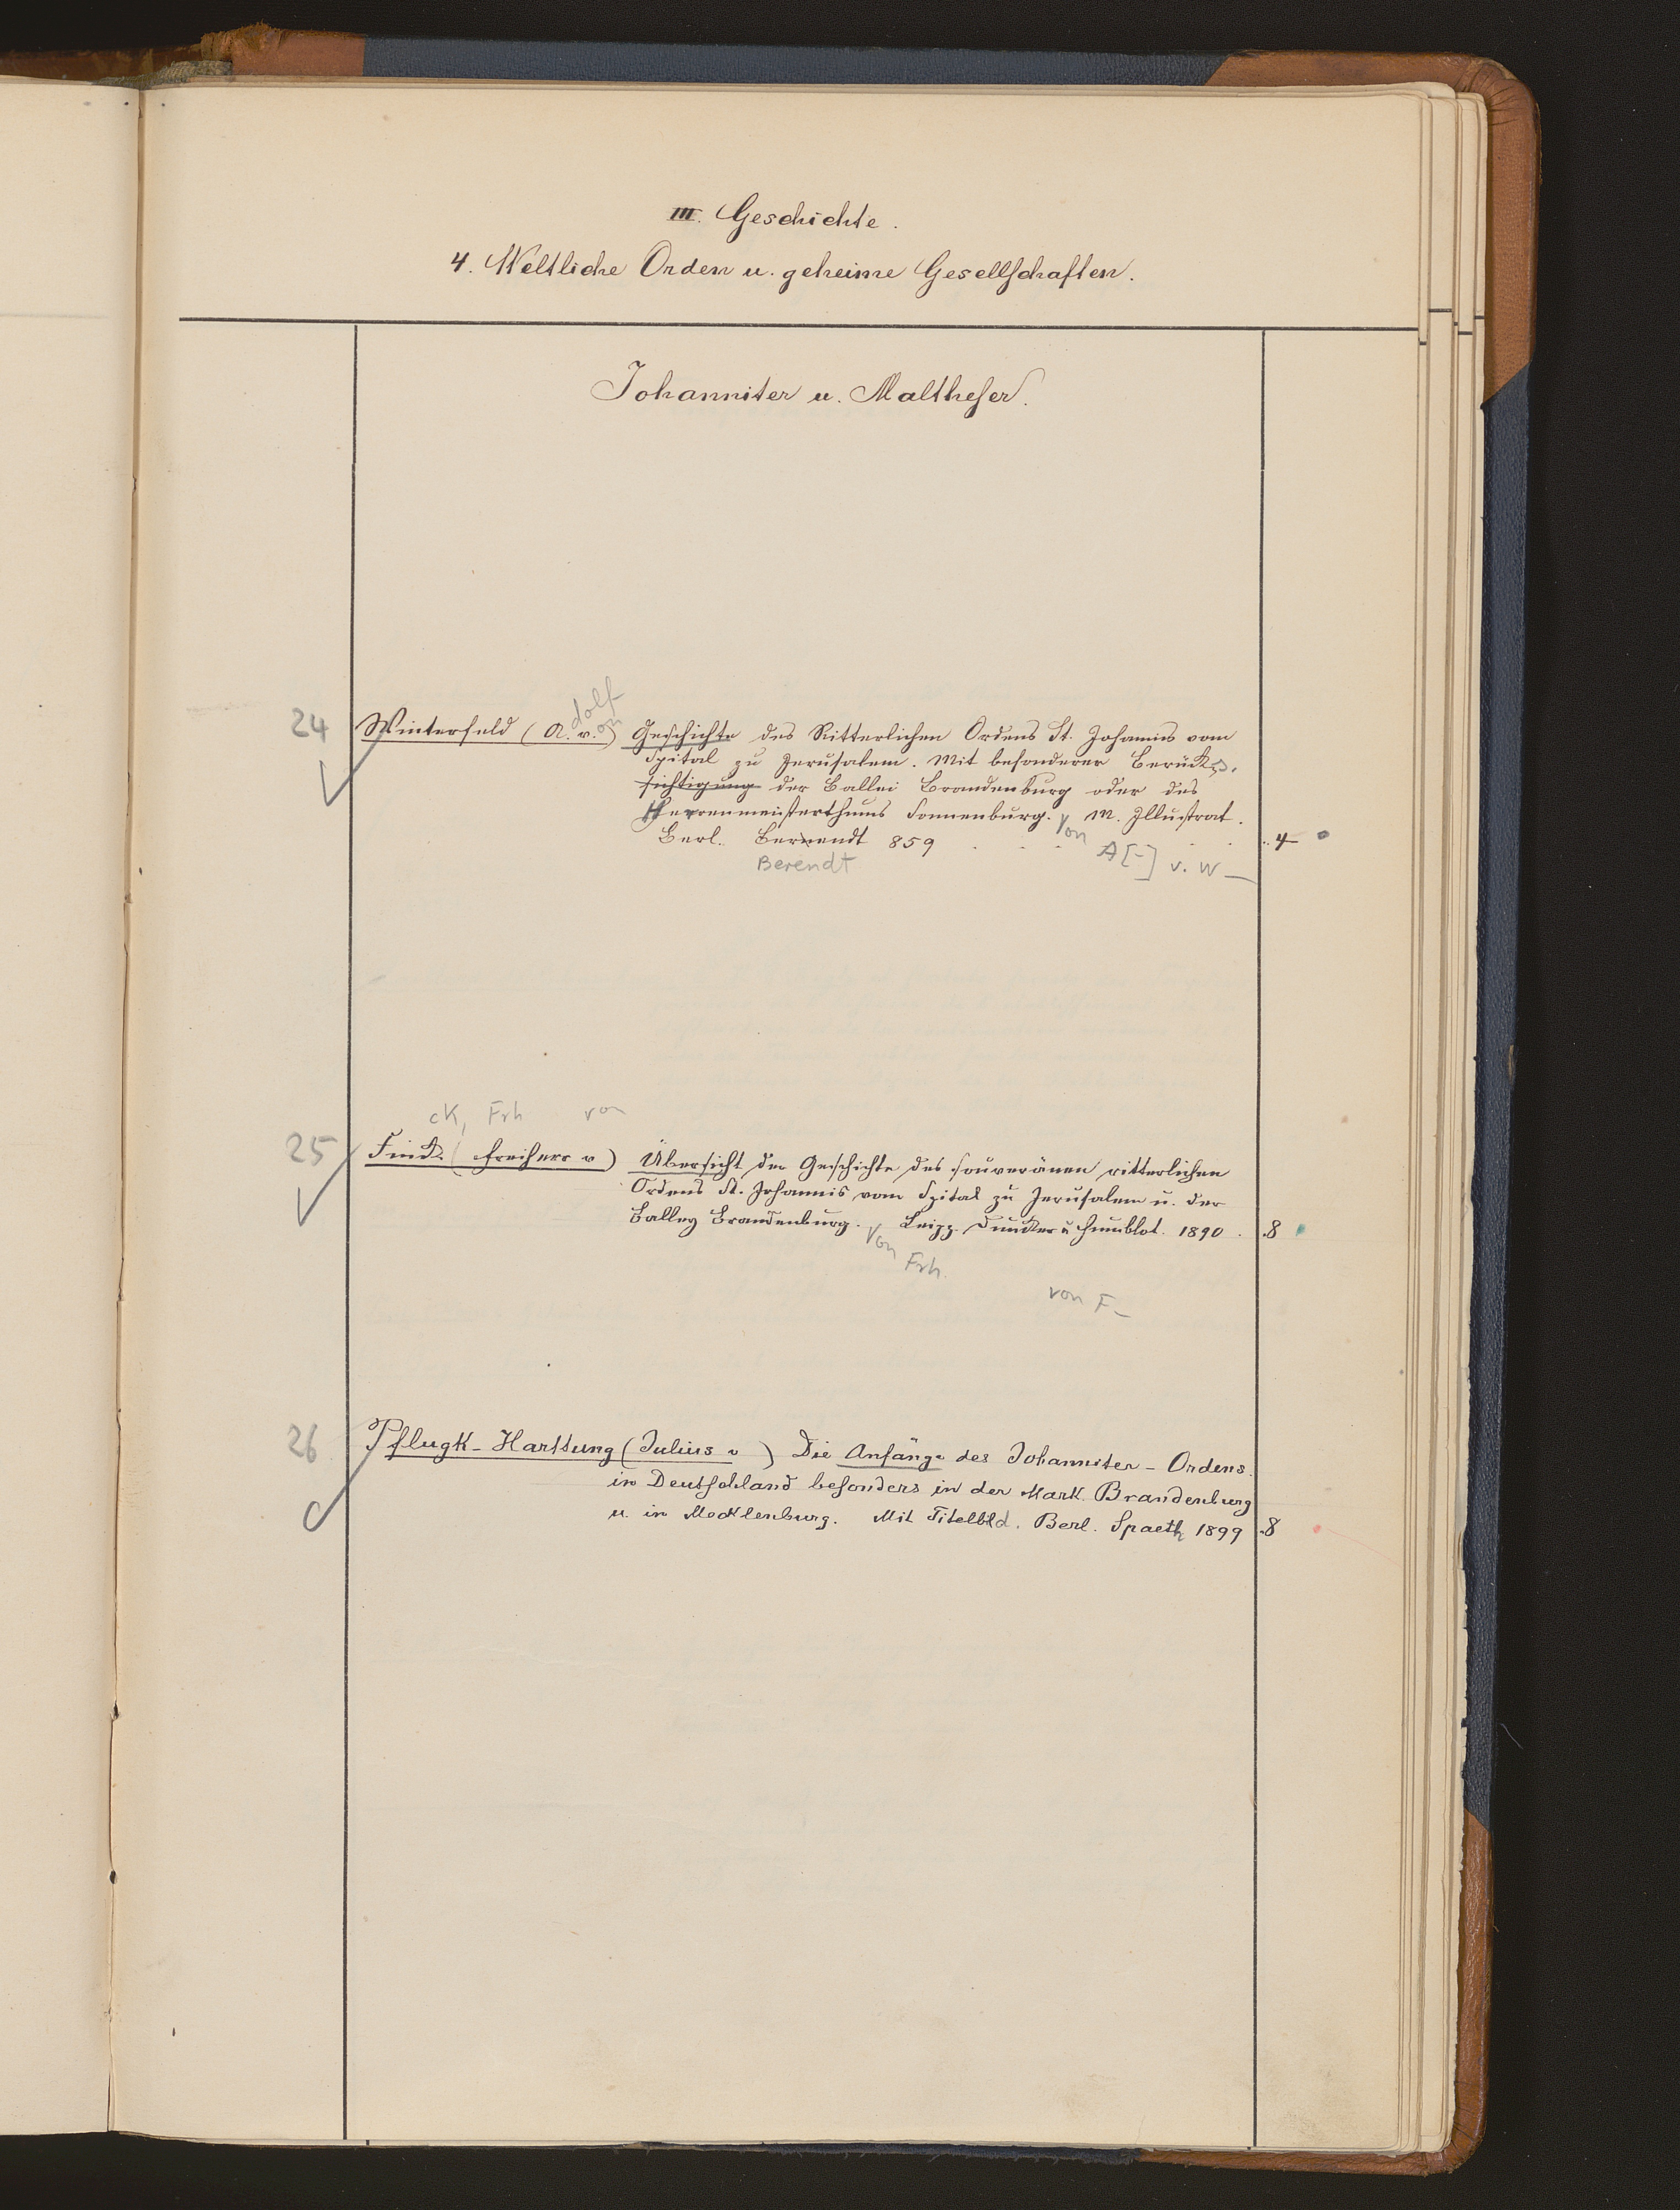 III. Geschichte.
4. Weltliche Orden u. geheime Gesellschaften.
Johanniter u. Maltheser.
dolf
on
24 Winterfeld (A. v.) Geschichte des Ritterlichen Ordens St. Johannis vom
Spital zu Jerusalem. Mit besonderer Berücks.
sichtigung der Ballei Brandenburg oder des
Herrenmeisterthums Sonnenburg. M. Illustrat.
Von
Berl. Berendt 859 . . . . . 4
Berendt
A[-] v. W_
ck, Frh von
25 Finck (Freiherr v) Übersicht der Geschichte des souveränen ritterlichen
Ordens St. Johannis vom Spital zu Jerusalem u. der
Balley Brandenburg. Leipz. Duncker u Humblot. 1890. 8
Von
Frh.
von F_
26 Pflugk-Harttung (Julius v ) Die Anfänge des Johanniter-Ordens
in Deutschland besonders in der Mark Brandenburg
u. in Mecklenburg. Mit Titelbld. Berl. Spaeth 1899 8